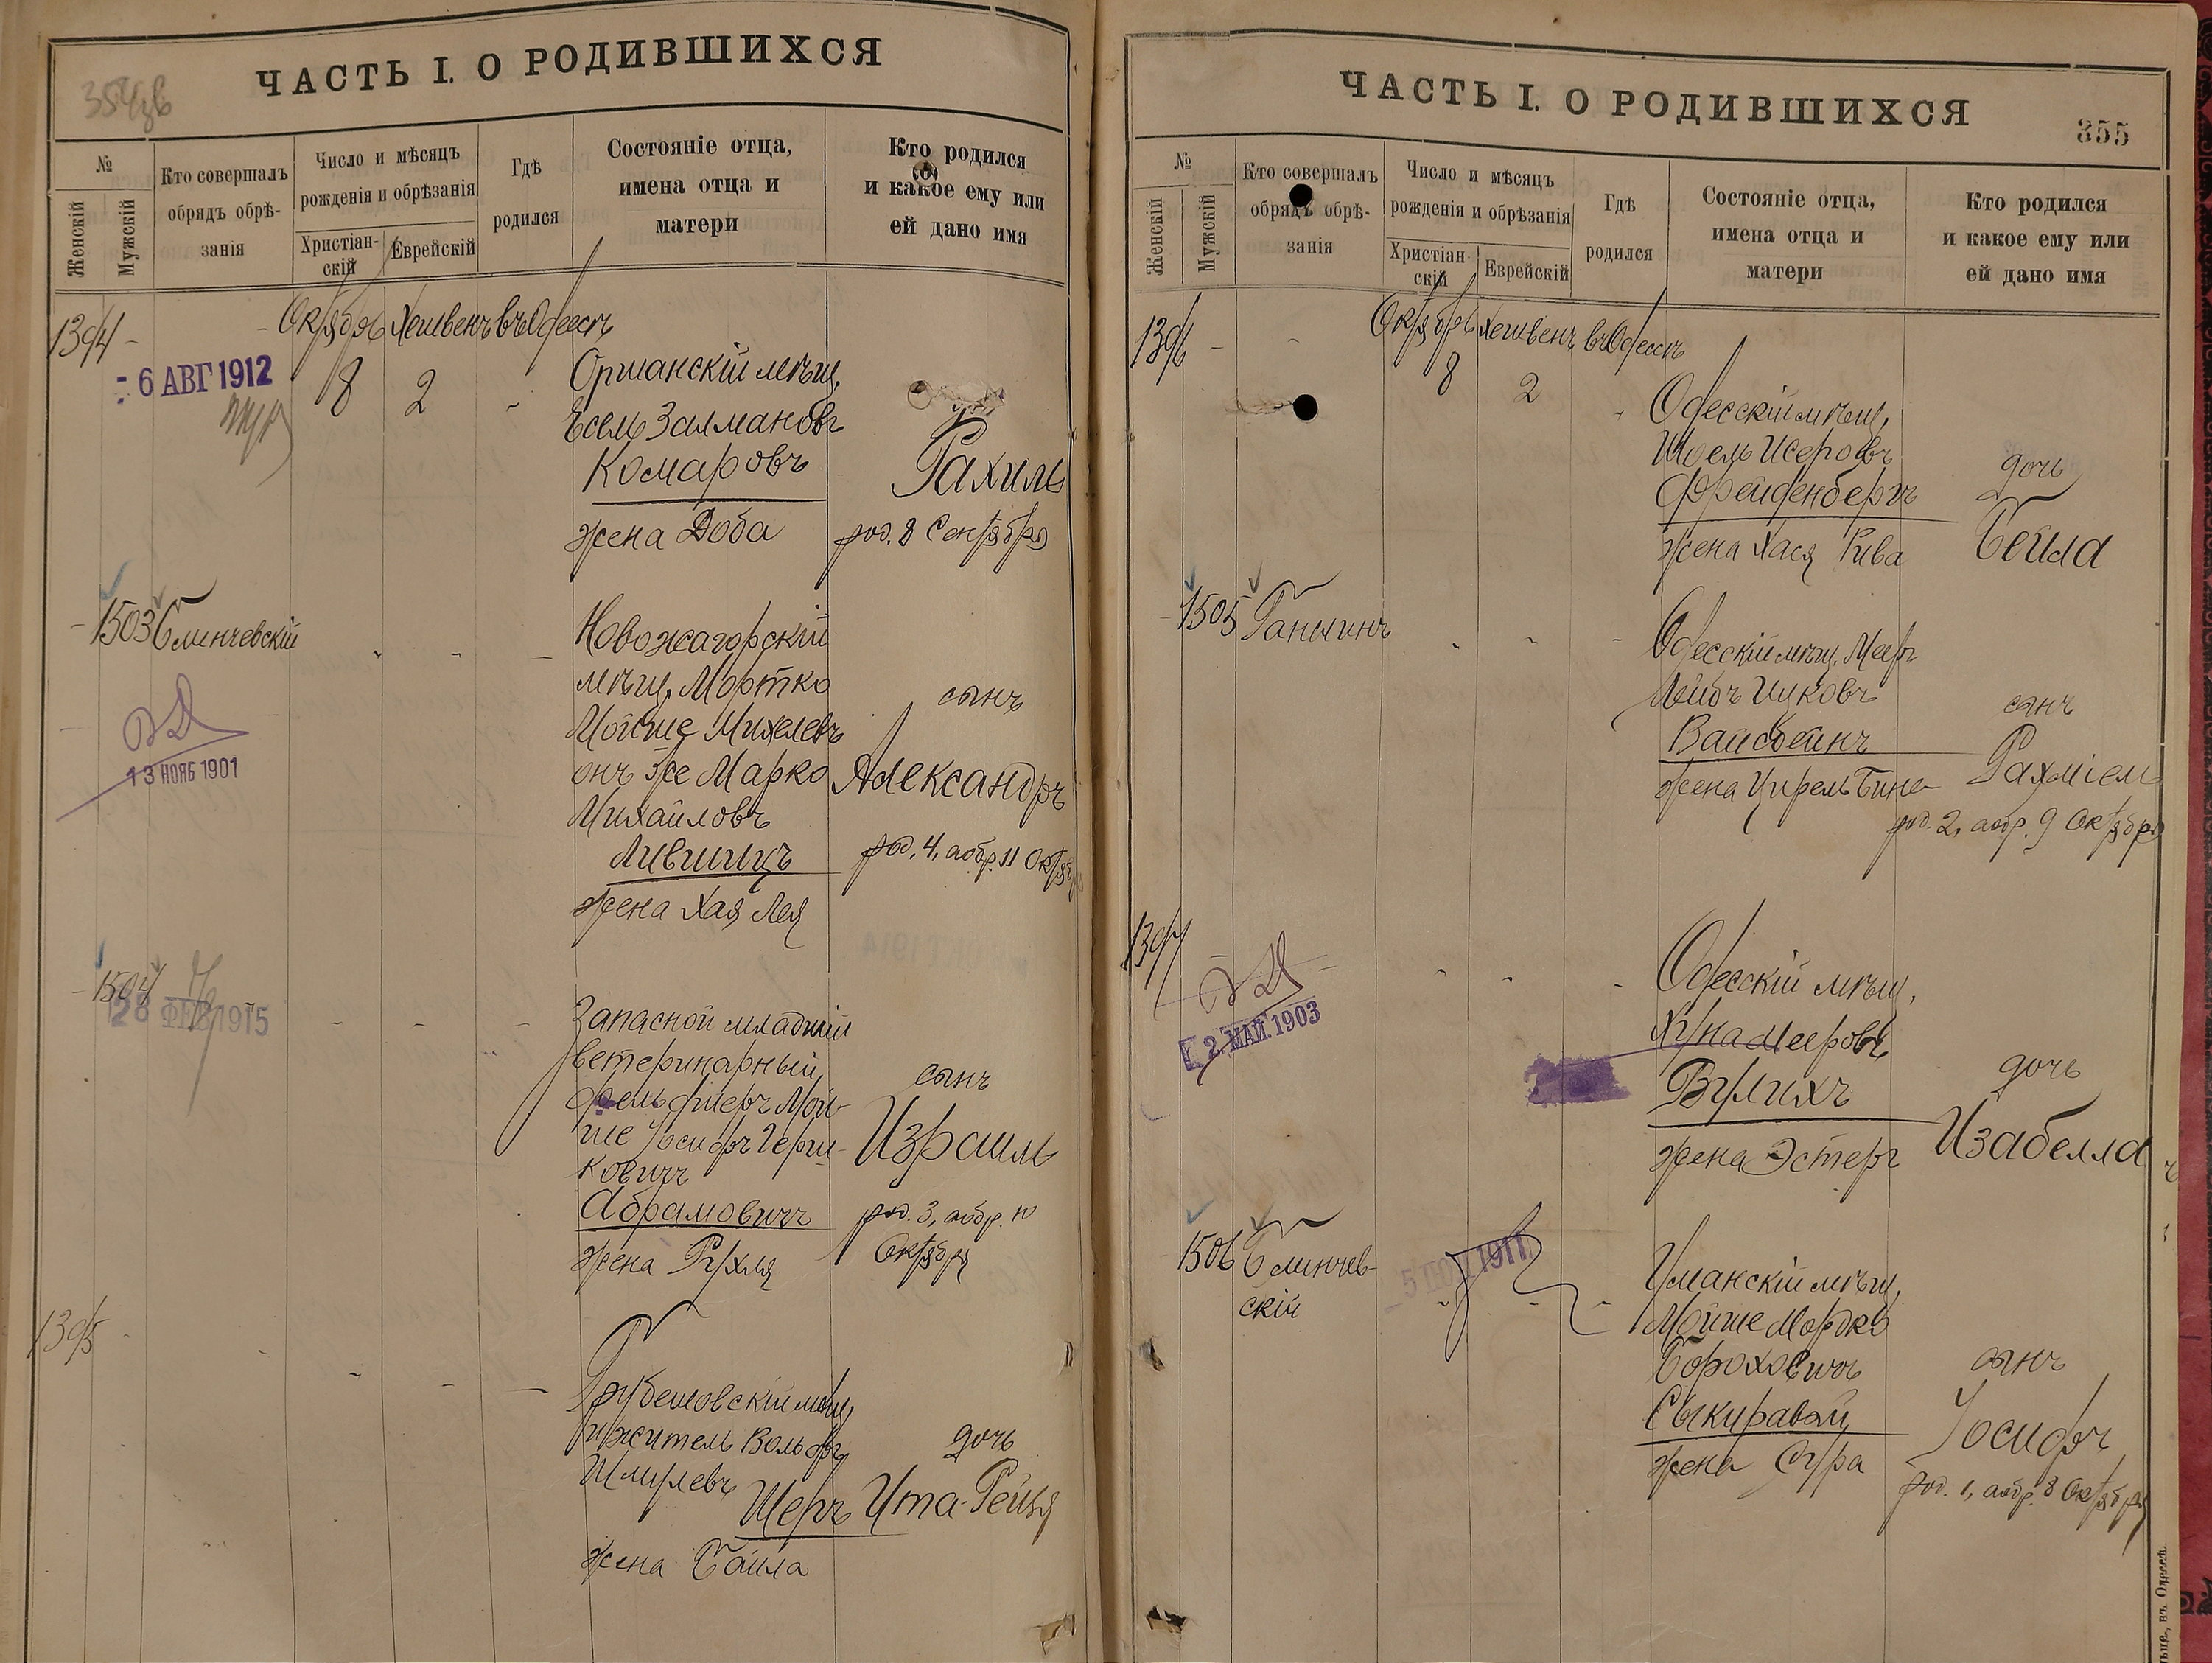 354 об
ЧАСТЬ I. О РОДИВШИХСЯ
№
Женскій
Мужскій
Кто совершалъ
обрядъ обрѣ-
занія
Число и мѣсяцъ
рожденія и обрѣзанія
Христіан-
скій
Еврейскій
Гдѣ
родился
Состояніе отца,
имена отца и
матери
Кто родился
и какое ему или
ей дано имя
1394
Октябрь Хешвенъ въ Одессѣ
- 6 АВГ 1912
8 2
Оршанскій мѣщ.
Есель Залмановъ
Комаровъ
жена Доба
Рахиль
род. 8 Сентября
1503 Блинчевскій
13 НОЯБ 1901
Новожагорскій
мѣщ. Мортко
Мойше Михелевъ
онъ же Марко
Михайловъ
Лившицъ
жена Хая Лея
сынъ
Александръ
род. 4, аобр. 11 Октяб
1504
28 ФЕВ 1915
Запасной младшій
ветеринарный
фельдшеръ Мой-
ше Іосифъ Герш-
ковичъ
Абрамовичъ
жена Рухля
сынъ
Израиль
род. 3, аобр. 10
Октября
1395
Грубешовскій мѣщ.
житель Вольфъ
Шмулевъ
Шеръ
жена Бейла
дочь
Ита-Рейзя
ЧАСТЬ I. О РОДИВШИХСЯ
355
№
Женскій
Мужскій
Кто совершалъ
обрядъ обрѣ-
занія
Число и мѣсяцъ
рожденія и обрѣзанія
Христіан-
скій
Еврейскій
Гдѣ
родился
Состояніе отца,
имена отца и
матери
Кто родился
и какое ему или
ей дано имя
1396
Октябрь Хешвенъ въ Одессѣ
8 2
Одесскій мѣщ.
Шоель Исеровъ
Фрейденбергъ
жена Хася Рива
дочь
Бейла
1505
Одесскій мѣщ. Мееръ
Лейбъ Ицковъ
Вайсбейнъ
жена Цирель Бина
сынъ
Рахміель
род. 2, аобр. 9 Октября
1397
2 МАЙ 1903
Одесскій мѣщ.
Хуна Мееровъ
Вулихъ
жена Эстеръ
дочь
Изабелла
1506 Блинчев-
скій
1911
Уманскій мѣщ.
Мойше Мордко
Бороховичъ
Сыкиравой
жена Сура
сынъ
Іосифъ
род. 1, аобр. 8 Октября